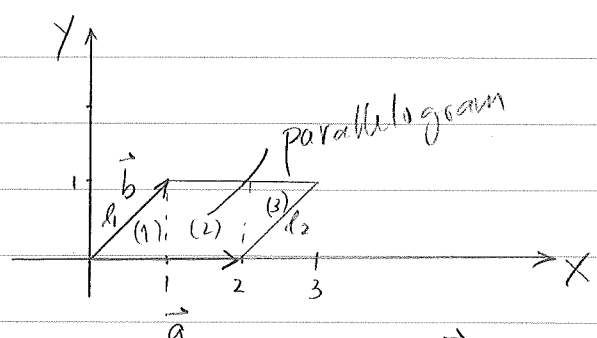 Y
parallelogram
1
b⃗
(3)
l₁
(1)
(2)
l₂
X
1
2
3
a⃗